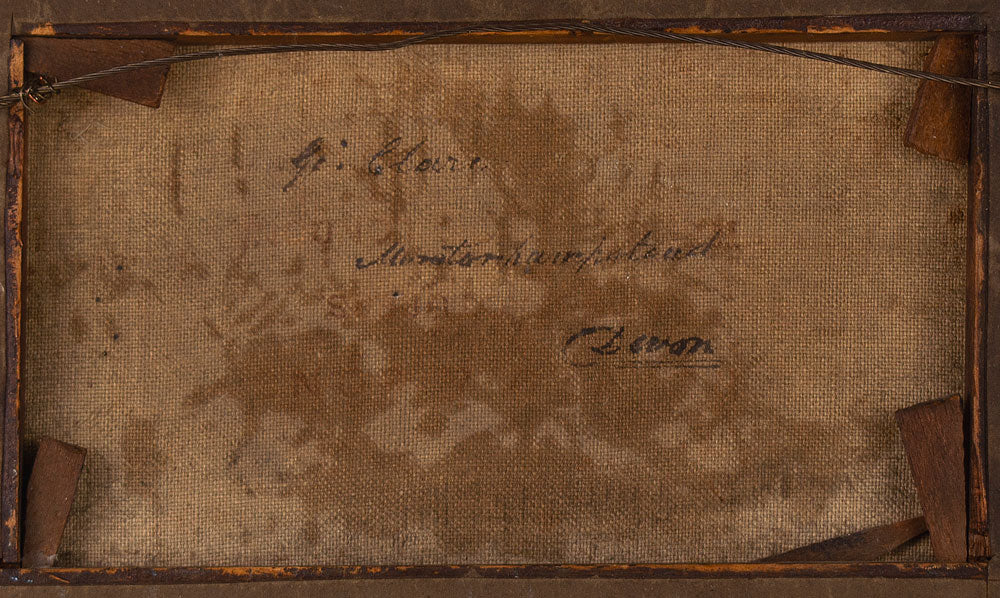 G: Clare
Moretonhampstead
Devon